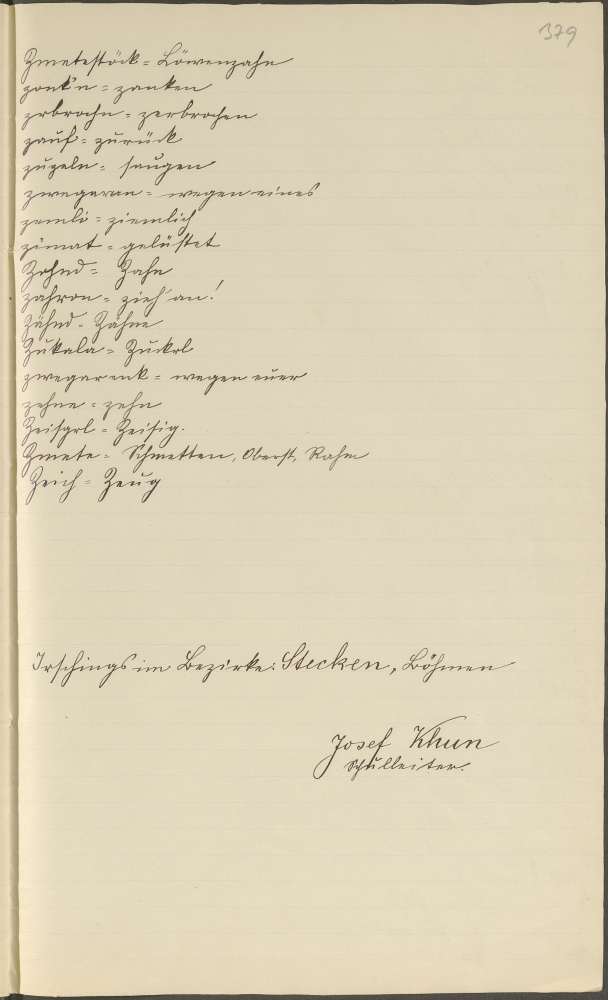 379
Zmetestöck = Löwenzahn
zonk'n = zanken
zrbrochn = zerbrochen
zauf = zurück
zuzeln = saugen
zwegaran = wegen eines
zemli = ziemlich
zimat = gelüstet
Zohnd = Zahn
zahron = zieh' an!
Zähnd = Zähne
Zukala = Zuckrl
zwegar enk = wegen euer
zehne = zehn
Zeisgrl = Zeisig.
Zmete = Schmetten, Oberst, Rahm
Zeich = Zeug
Irschings im Bezirke: Stecken, Böhmen
Josef Khun
Schulleiter.